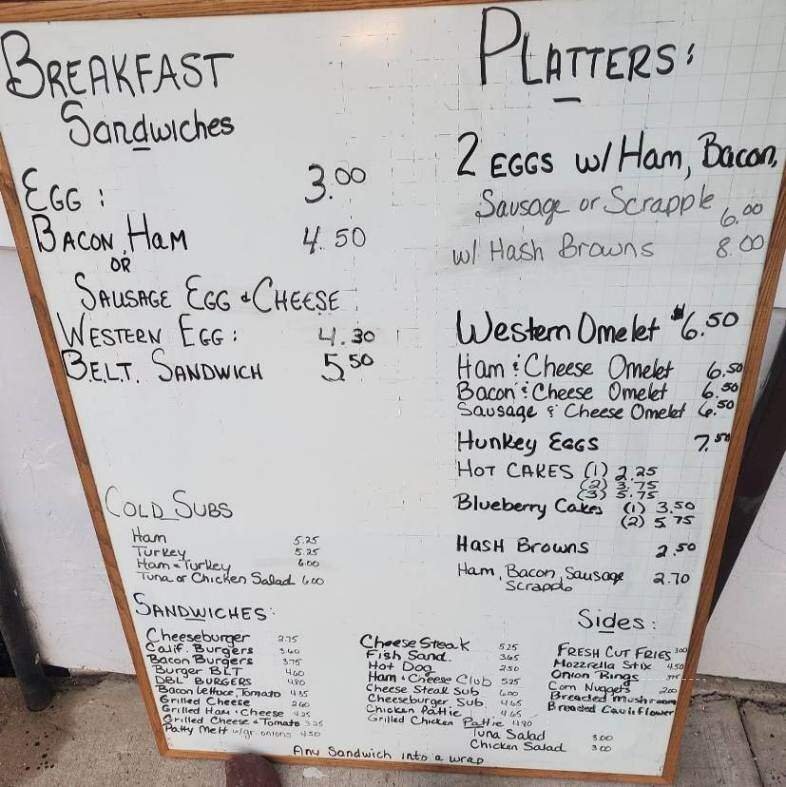 BREAKFAST
Sandwiches
EGG : 3.00
BACON, HAM 4.50
OR
SAUSAGE EGG & CHEESE
WESTERN EGG : 4.30
B.E.L.T. SANDWICH 5.50
PLATTERS:
2 EGGS w/ Ham, Bacon,
Sausage or Scrapple 6.00
w/ Hash Browns 8.00
Western Omelet $6.50
Ham & Cheese Omelet 6.50
Bacon & Cheese Omelet 6.50
Sausage & Cheese Omelet 6.50
Hunkey EGGS 7.50
HOT CAKES (1) 2.25
(2) 3.75
(3) 5.75
Blueberry Cakes (1) 3.50
(2) 5.75
HASH BROWNS 2.50
Ham, Bacon, Sausage 2.70
Scrapple
COLD SUBS
Ham 5.25
Turkey 5.25
Ham & Turkey 6.00
Tuna or Chicken Salad 6.00
SANDWICHES:
Cheeseburger 2.75
Calif. Burgers 3.60
Bacon Burgers 3.75
Burger BLT 4.60
DBL BURGERS 4.80
Bacon Lettuce, Tomato 4.35
Grilled Cheese 2.60
Grilled Ham & Cheese
Grilled Cheese & Tomato 3.25
Patty Melt w/gr onions 4.50
Cheese Steak 5.25
Fish Sand. 3.65
Hot Dog 2.50
Ham & Cheese Club 5.25
Cheese Steak Sub 6.00
Cheeseburger Sub 4.65
Chicken Pattie 4.65
Grilled Chicken Pattie
Tuna Salad 3.00
Chicken Salad 3.00
Sides:
FRESH CUT FRIES 3.00
Mozzrella Stix 4.50
Onion Rings
Corn Nuggets 2.00
Breaded Mushroom
Breaded Cauliflower
Any Sandwich into a wrap